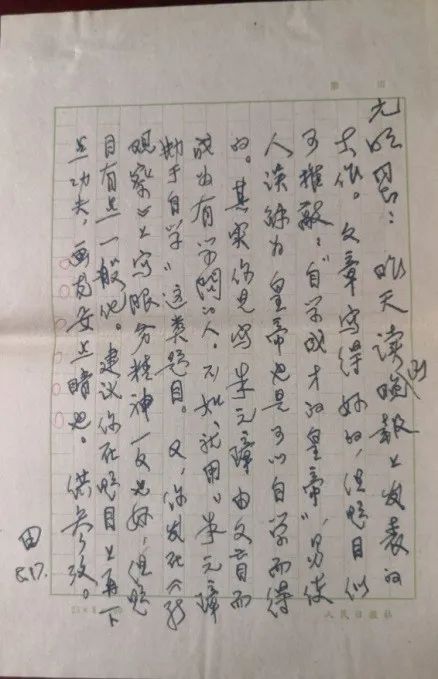 同志：昨天读到晚报上发表的
大作。文章写得好的，但题目似
可推敲："自学成才的皇帝"，易使
人误解为皇帝也是可以自学而得
的。其实你是写朱元璋由文盲而
成为有学问的人。不如就用"朱元璋
勤于自学"这类题目。又，你发在《新
观察》上写眼 精神一文也好，但题
目有点一般化。建议你在题目上再下
点功夫，画龙要点睛也。供参考。
田
8.17.
人民日报社